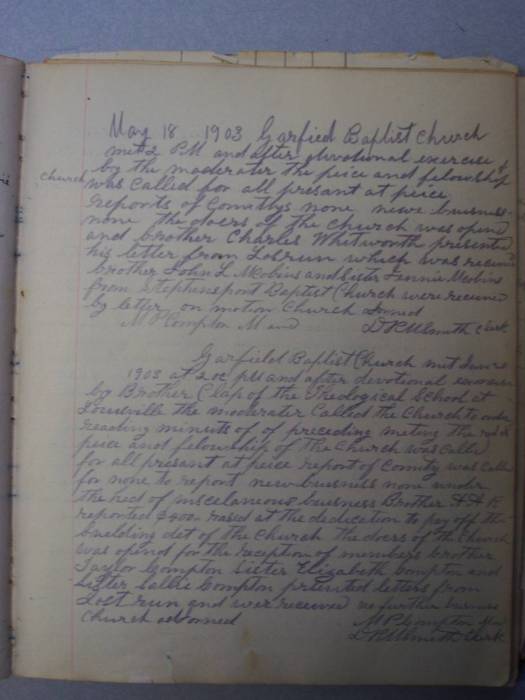 May 18 1903 Garfied Baptist Church
met 2 PM and after devotional exercise
by the moderater the peice and felowship
church was called for all presant at peice
reports of Comittys none new buisness
none the doers of the church was opind
and brother Charles Whitworth presented
his letter from Lostrun which was receive
brother John L Mcobins and Sister Fennie Mcobins
from Stephensport Baptist Church were received
by letter on motion Church
M P Compton M and Clerk
Garfield Baptist Church met
1903 at 2 oc PM and after devotional exercise
by Brother Clap of the Theological School at
Louisville the moderater Called the Church to order
reading minuts of of preceding meting the
peice and felowship of the Church was Calld
for all presant at peice report of Comity was Calld
for none to report new buisness none under
the hed of miscelanious buisness Brother
reported $400 rased at the dedication to pay off the
building det of the Church the doers of the Church
was opind for the reception of members brother
Taylor Compton Sister Elizabeth Compton and
Sister Sallie Compton prisented letters from
Lost run and wer received no further buisness
Church adorned M P Compton
Clerk